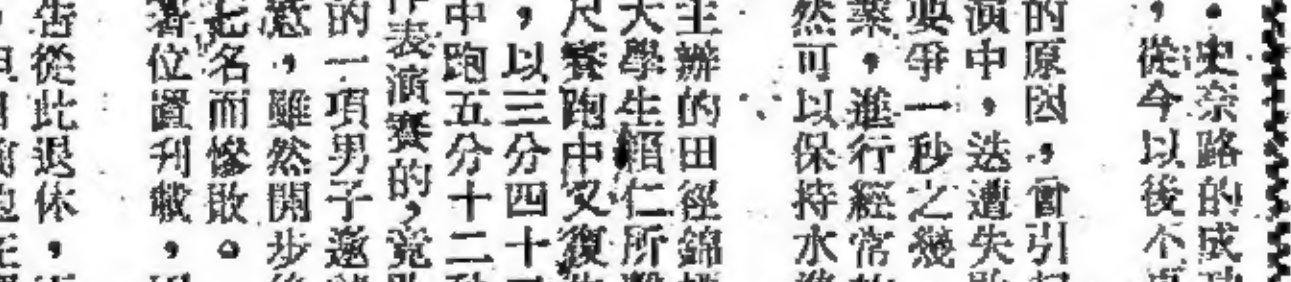 ・史奈路的成
，從今以後不再
的原因，曾引起
演中，迭遭失敗
要爭一秒之幾
業，進行經常的
然可以保持水準
主辦的田徑錦標
大學生順仁所擊
尺賽跑中又復
，以三分四十
中跑五分十二
作表演賽的，竟
的一項男子邀
意，雖然開步後
七名而慘敗。
著位置刊載，
告從此退休，